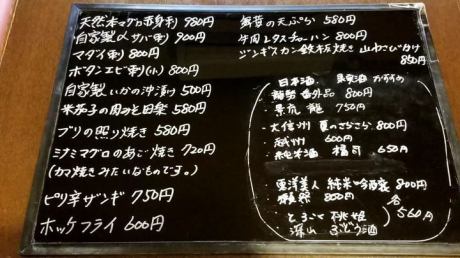 天然本マグロ赤身刺 980円
自家製〆サバ刺 900円
マダイ刺 800円
ボタンエビ刺(小) 800円
自家製いかの沖漬け 500円
米茄子の肉みそ田楽 580円
ブリの照り焼き 580円
ミナミマグロのあご焼き 720円
(カマ焼きみたいなものです。)
ピリ辛ザンギ 750円
ホッケフライ 600円
舞茸の天ぷら 580円
牛肉レタスチャーハン 800円
ジンギスカン鉄板焼き 山わさびがけ
850円
日本酒 おすすめ
龍勢 番外品 800円
景虎 龍 750円
・大信州 夏のさらさら 800円
・紀州 600円
・純米酒 福司 650円
・東洋美人 純米吟醸 800円
・獺祭 850円
・とろこく 桃姫
・深山 ぶどう酒
各560円